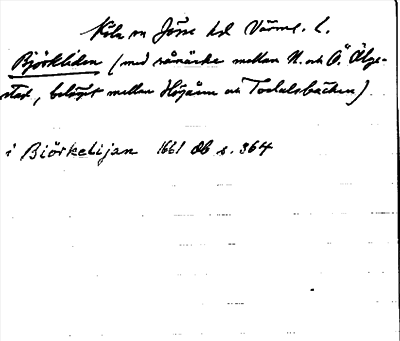 Köla sn Jösse hd Värml. l.
Björkliden (med råmärke mellan N. och Ö. Älge-
stad, beläget mellan Högåsen och Todalsbäcken)
i Biörkelijan 1661 Db s. 364